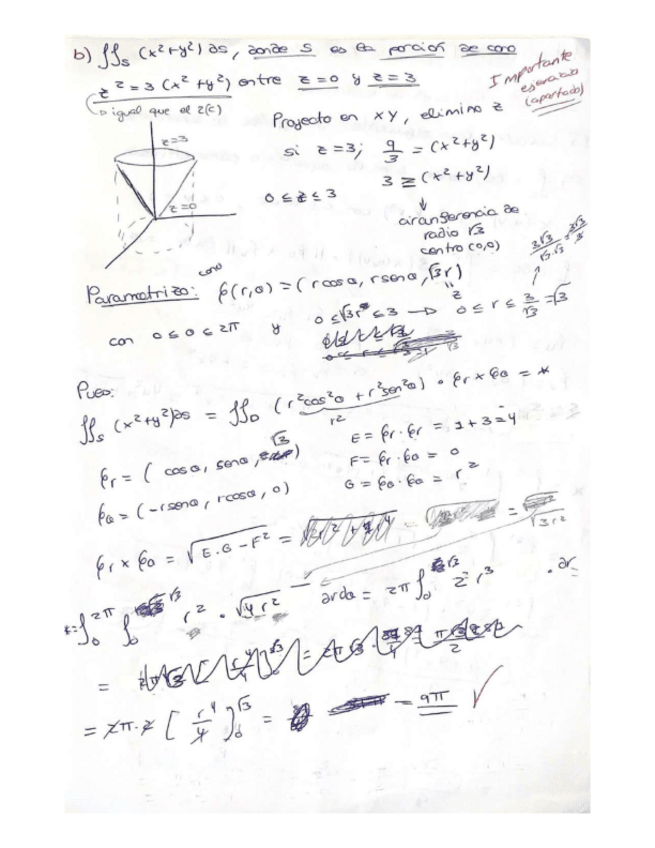 b) ∬_S (x²+y²) ds, donde S es la porción de cono
z² = 3 (x²+y²) entre z=0 y z=3
Importante
ejercicio
(apartado)
igual que el 2(c)
Proyecto en xy, elimino z
si z=3; 9/3 = (x²+y²)
3 ≥ (x²+y²)
0 ≤ z ≤ 3
z=3
z=0
circunferencia de
radio √3
centro (0,0)
cono
Parametrizo: φ(r,θ) = (r cosθ, r senθ, √3 r)
z
con 0 ≤ θ ≤ 2π y 0 ≤ √3r ≤ 3 → 0 ≤ r ≤ 3/√3 = √3
Pues:
∬_S (x²+y²)ds = ∬_D (r²cos²θ + r²sen²θ) · φr × φθ = *
r²
φr = (cosθ, senθ, √3)
φθ = (-r senθ, r cosθ, 0)
E = φr · φr = 1+3=4
F = φr · φθ = 0
G = φθ · φθ = r²
φr × φθ = √(E·G - F²) =
* = ∫₀^2π ∫₀^√3 r² · √(4r²) drdθ = 2π ∫₀^√3 2 r³ · dr
= 2π·2 [r⁴/4]₀^√3 = 9π